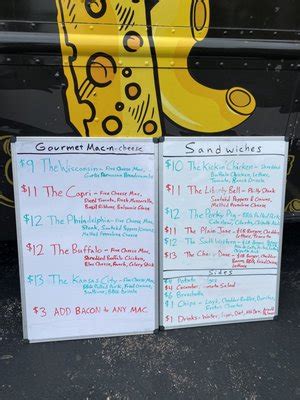 Gourmet Mac-n-cheese
$9 The Wisconsin - Five Cheese Mac,
Garlic Parmesan Breadcrumbs
$11 The Capri - Five Cheese Mac,
Diced Tomatoes, Fresh Mozzarella,
Basil Ribbons, Balsamic Glaze
$12 The Philadelphia - Five Cheese Mac,
Steak, Sautéed Peppers & Onions,
Melted Provolone Cheese
$12 The Buffalo - Five Cheese Mac,
Shredded Buffalo Chicken,
Blue Cheese, Ranch, Celery Stick
$13 The Kansas City -
BBQ Pulled Pork, Fried Onions,
$3 ADD BACON to ANY MAC
Sandwiches
$10 The Kickin' Chicken - Shredded
Buffalo Chicken, Lettuce,
Tomato, Ranch
$11 The Liberty Bell - Philly Steak
Sautéed Peppers & Onions,
Melted Provolone Cheese
$12 The Porky Pig - BBQ Pulled Pork
Coleslaw
$11 The Plain Jane -
Cheddar Burger, Lettuce,
$12 The Southwestern -
$13 The
Sides
$4 Potato
$4 Cucumber Tomato Salad
$6
$1 Chips - Lays, Cheddar Ruffles, Doritos,
$1 Drinks - Water,